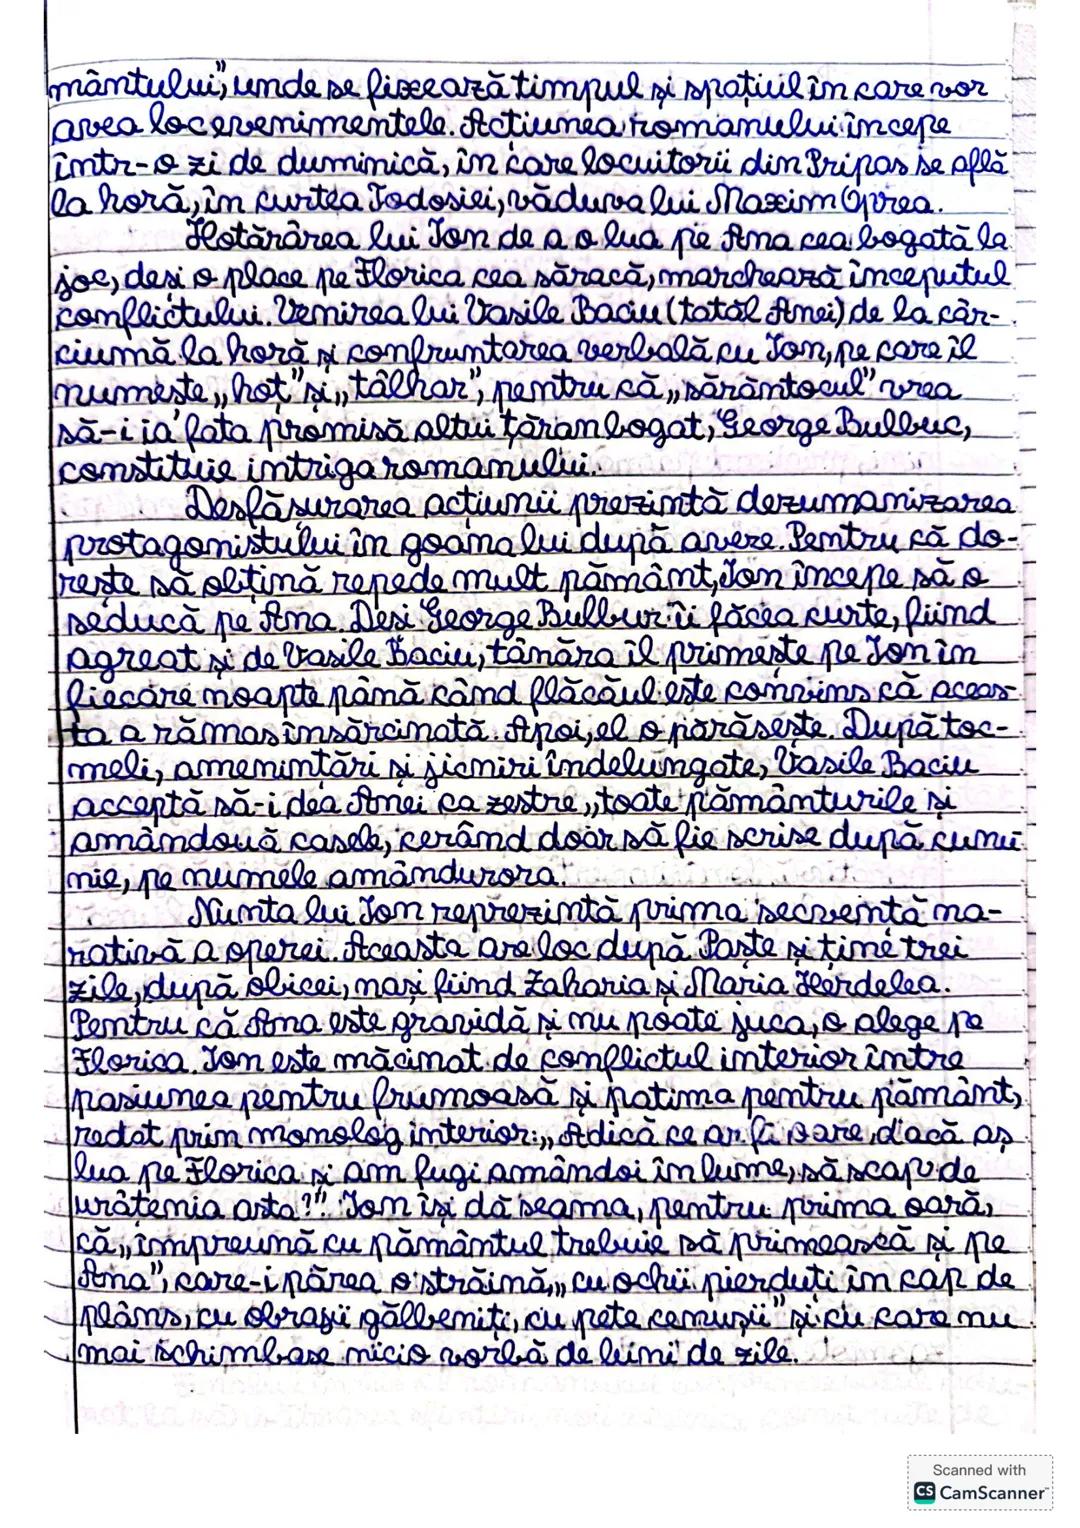 mântului", unde se fixează timpul și spațiul în care vor
avea loc evenimentele. Acțiunea romanului începe
într-o zi de duminică, în care locuitorii din Pripas se află
la horă, în curtea Todosiei, văduva lui Maxim Oprea.
Hotărârea lui Ion de a o lua pe Ana cea bogată la
joc, deși o place pe Florica cea săracă, marchează începutul
conflictului. Venirea lui Vasile Baciu (tatăl Anei) de la câr-
ciumă la horă și confruntarea verbală cu Ion, pe care îl
numește „hoț" și „tâlhar", pentru că „sărăntocul" vrea
să-i ia fata promisă altui țăran bogat, George Bulbuc,
constituie intriga romanului.
Desfășurarea acțiunii prezintă dezumanizarea
protagonistului în goana lui după avere. Pentru că do-
rește să obțină repede mult pământ, Ion începe să o
seducă pe Ana. Deși George Bulbuc îi făcea curte, fiind
agreat și de Vasile Baciu, tânăra îl primește pe Ion în
fiecare noapte până când flăcăul este convins că aceas-
ta a rămas însărcinată. Apoi, el o părăsește. După toc-
meli, amenințări și jicniri îndelungate, Vasile Baciu
acceptă să-i dea Anei ca zestre „toate pământurile și
amândouă casele, cerând doar să fie scrise după cunu-
nie, pe numele amândurora.
Nunta lui Ion reprezintă prima secvență na-
rativă a operei. Aceasta are loc după Paște și ține trei
zile, după obicei, nași fiind Zaharia și Maria Herdelea.
Pentru că Ana este gravidă și nu poate juca, o alege pe
Florica. Ion este măcinat de conflictul interior între
pasiunea pentru frumoasă și patima pentru pământ,
redat prin monolog interior: „Adică ce ar fi oare, dacă aș
lua pe Florica și am fugi amândoi în lume, să scap de
urâțenia asta?". Ion își dă seama, pentru prima oară,
că „împreună cu pământul trebuie să primească și pe
Ana", care-i părea o străină „cu ochii pierduți în cap de
plâns, cu obrajii gălbeniți, cu pete cenușii" și cu care nu
mai schimbase nicio vorbă de luni de zile.
Scanned with
CS CamScanner